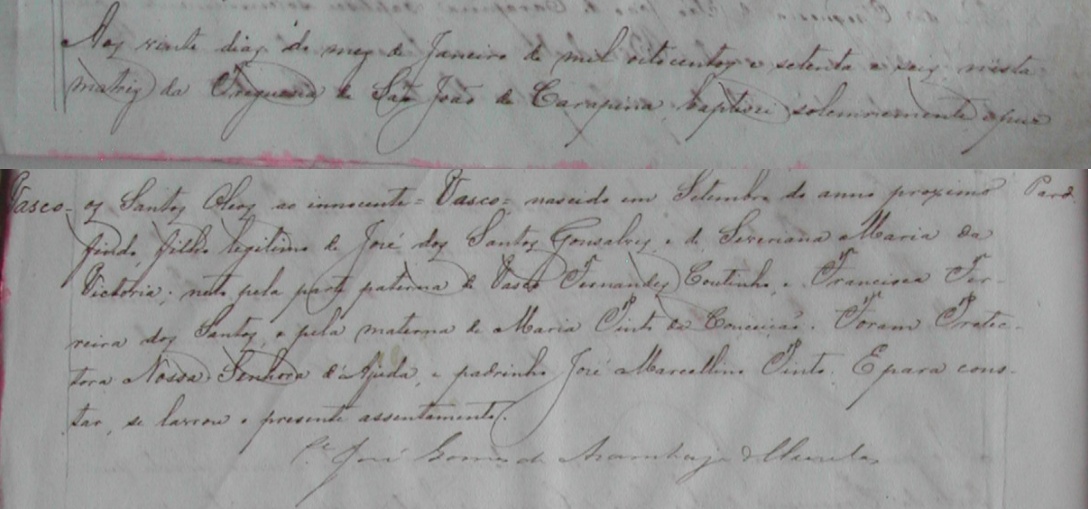 Aos vinte dias do mes de Janeiro de mil oitocentos e setenta e seis, nesta
matriz da Freguesia de São João de Carapina, baptisei solemnemente, e puz
Vasco - os Santos Oleos ao innocente = Vasco = nascido em Setembro do anno proximo Pard.
findo, filho legitimo de José dos Santos Gonsalves, e de Severiana Maria da
Victoria; neto pela parte paterna de Vasco Fernandes Coutinho, e Francisca Fer-
reira dos Santos, e pela materna de Maria Pinto da Conceição. Foram Protec-
tora Nossa Senhora d'Ajuda, e padrinho José Marcellino Pinto. E para cons-
tar, se lavrou o presente assentamento.
Pe José Gomes de Azambuja